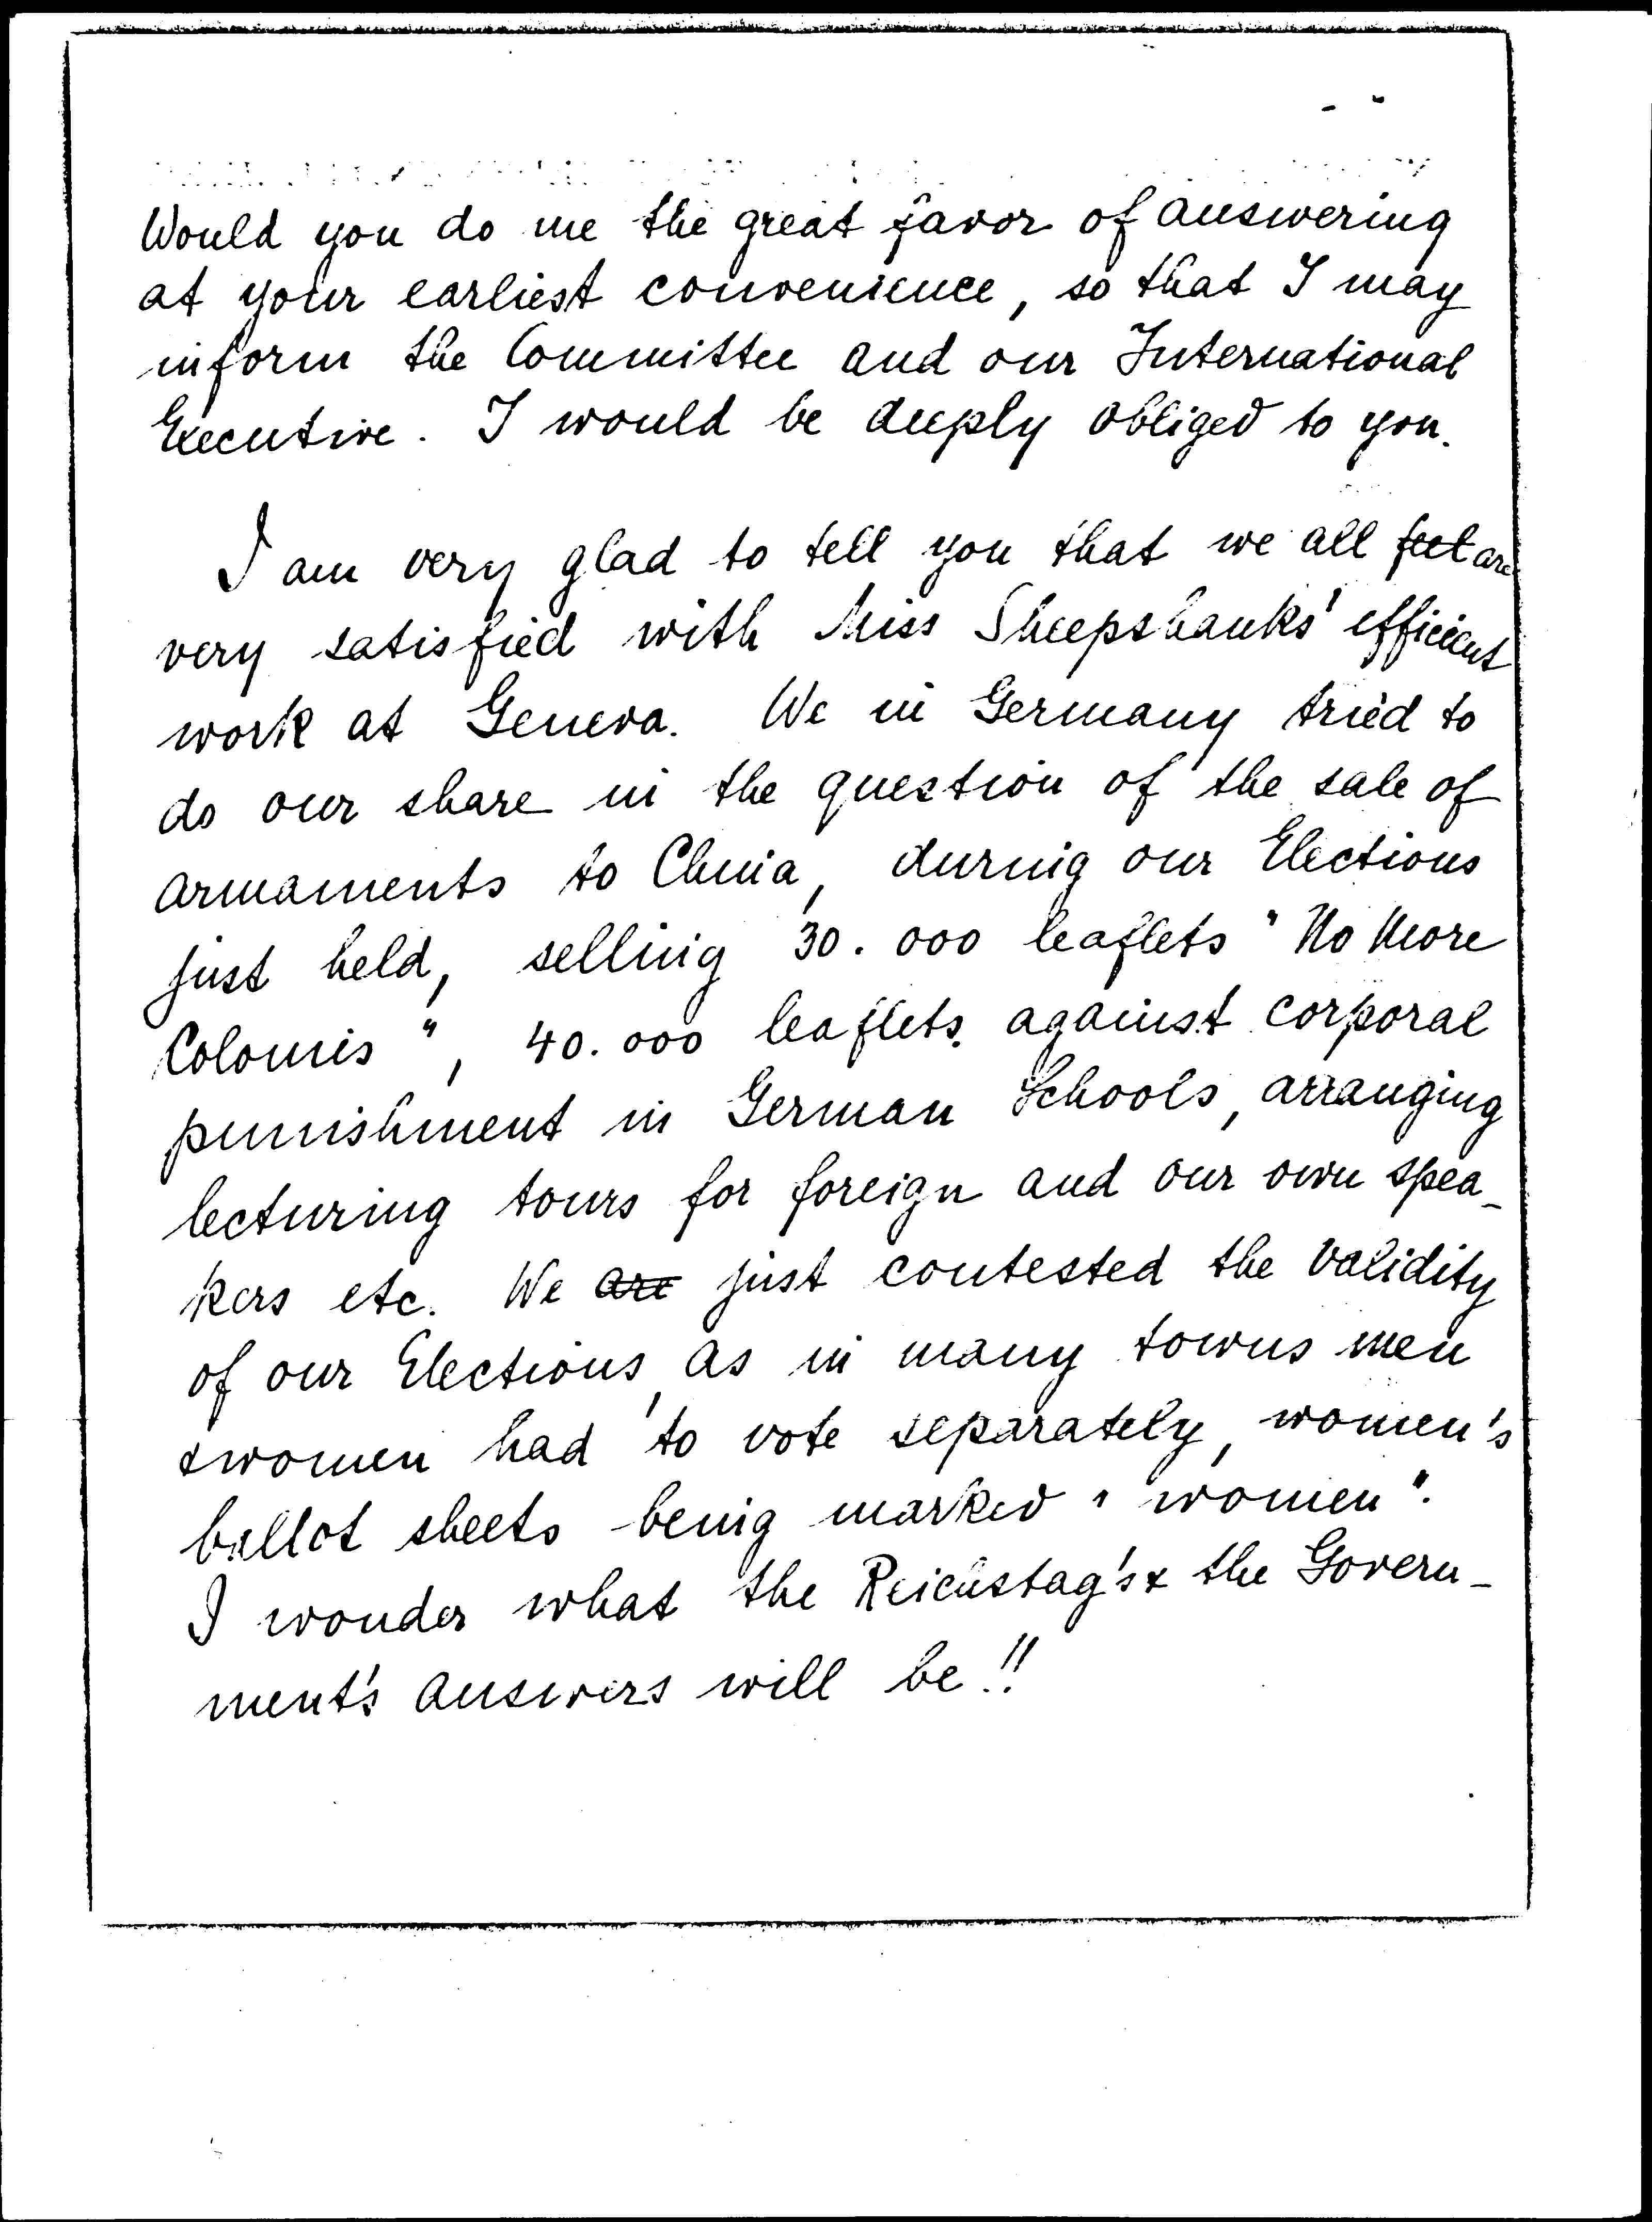 Would you do me the great favor of answering
at your earliest convenience, so that I may
inform the Committee and our International
Executive. I would be deeply obliged to you.
I am very glad to tell you that we all feel are
very satisfied with Miss Sheepshanks' efficient
work at Geneva. We in Germany tried to
do our share in the question of the sale of
armaments to China, during our Elections
just held, selling 30.000 leaflets "No More
Colonies", 40.000 leaflets against corporal
punishment in German Schools, arranging
lecturing tours for foreign and our own spea-
kers etc. We are just contested the validity
of our Elections, as in many towns men
& women had to vote separately, women's
ballot sheets being marked "women".
I wonder what the Reichstag's & the Govern-
ment's answers will be!!